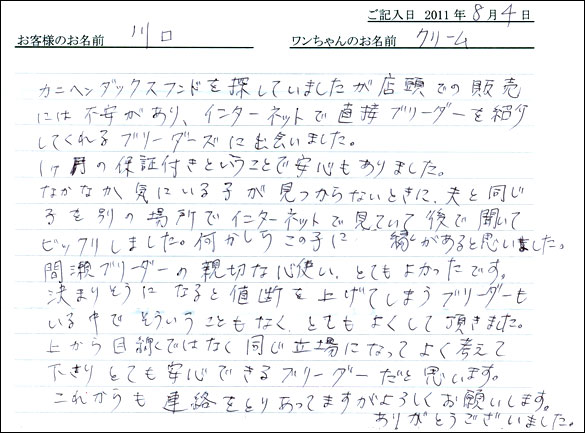 ご記入日 2011年8月4日
お客様のお名前 川口 ワンちゃんのお名前 クリーム
カニヘンダックスフンドを探していましたが店頭での販売
には不安があり、インターネットで直接ブリーダーを紹介
してくれるブリーダーズに出会いました。
1ヶ月の保証付きということで安心もありました。
なかなか気にいる子が見つからないときに、夫と同じ
子を別の場所でインターネットで見ていて後で聞いて
ビックリしました。何かしらこの子に 縁があると思いました。
間瀬ブリーダーの親切な心使い、とてもよかったです。
決まりそうになると値断を上げてしまうブリーダーも
いる中でそういうこともなく、とてもよくして頂きました。
上から目線ではなく同じ立場になってよく考えて
下さりとても安心できるブリーダーだと思います。
これからも連絡をとりあってますがよろしくお願いします。
ありがとうございました。